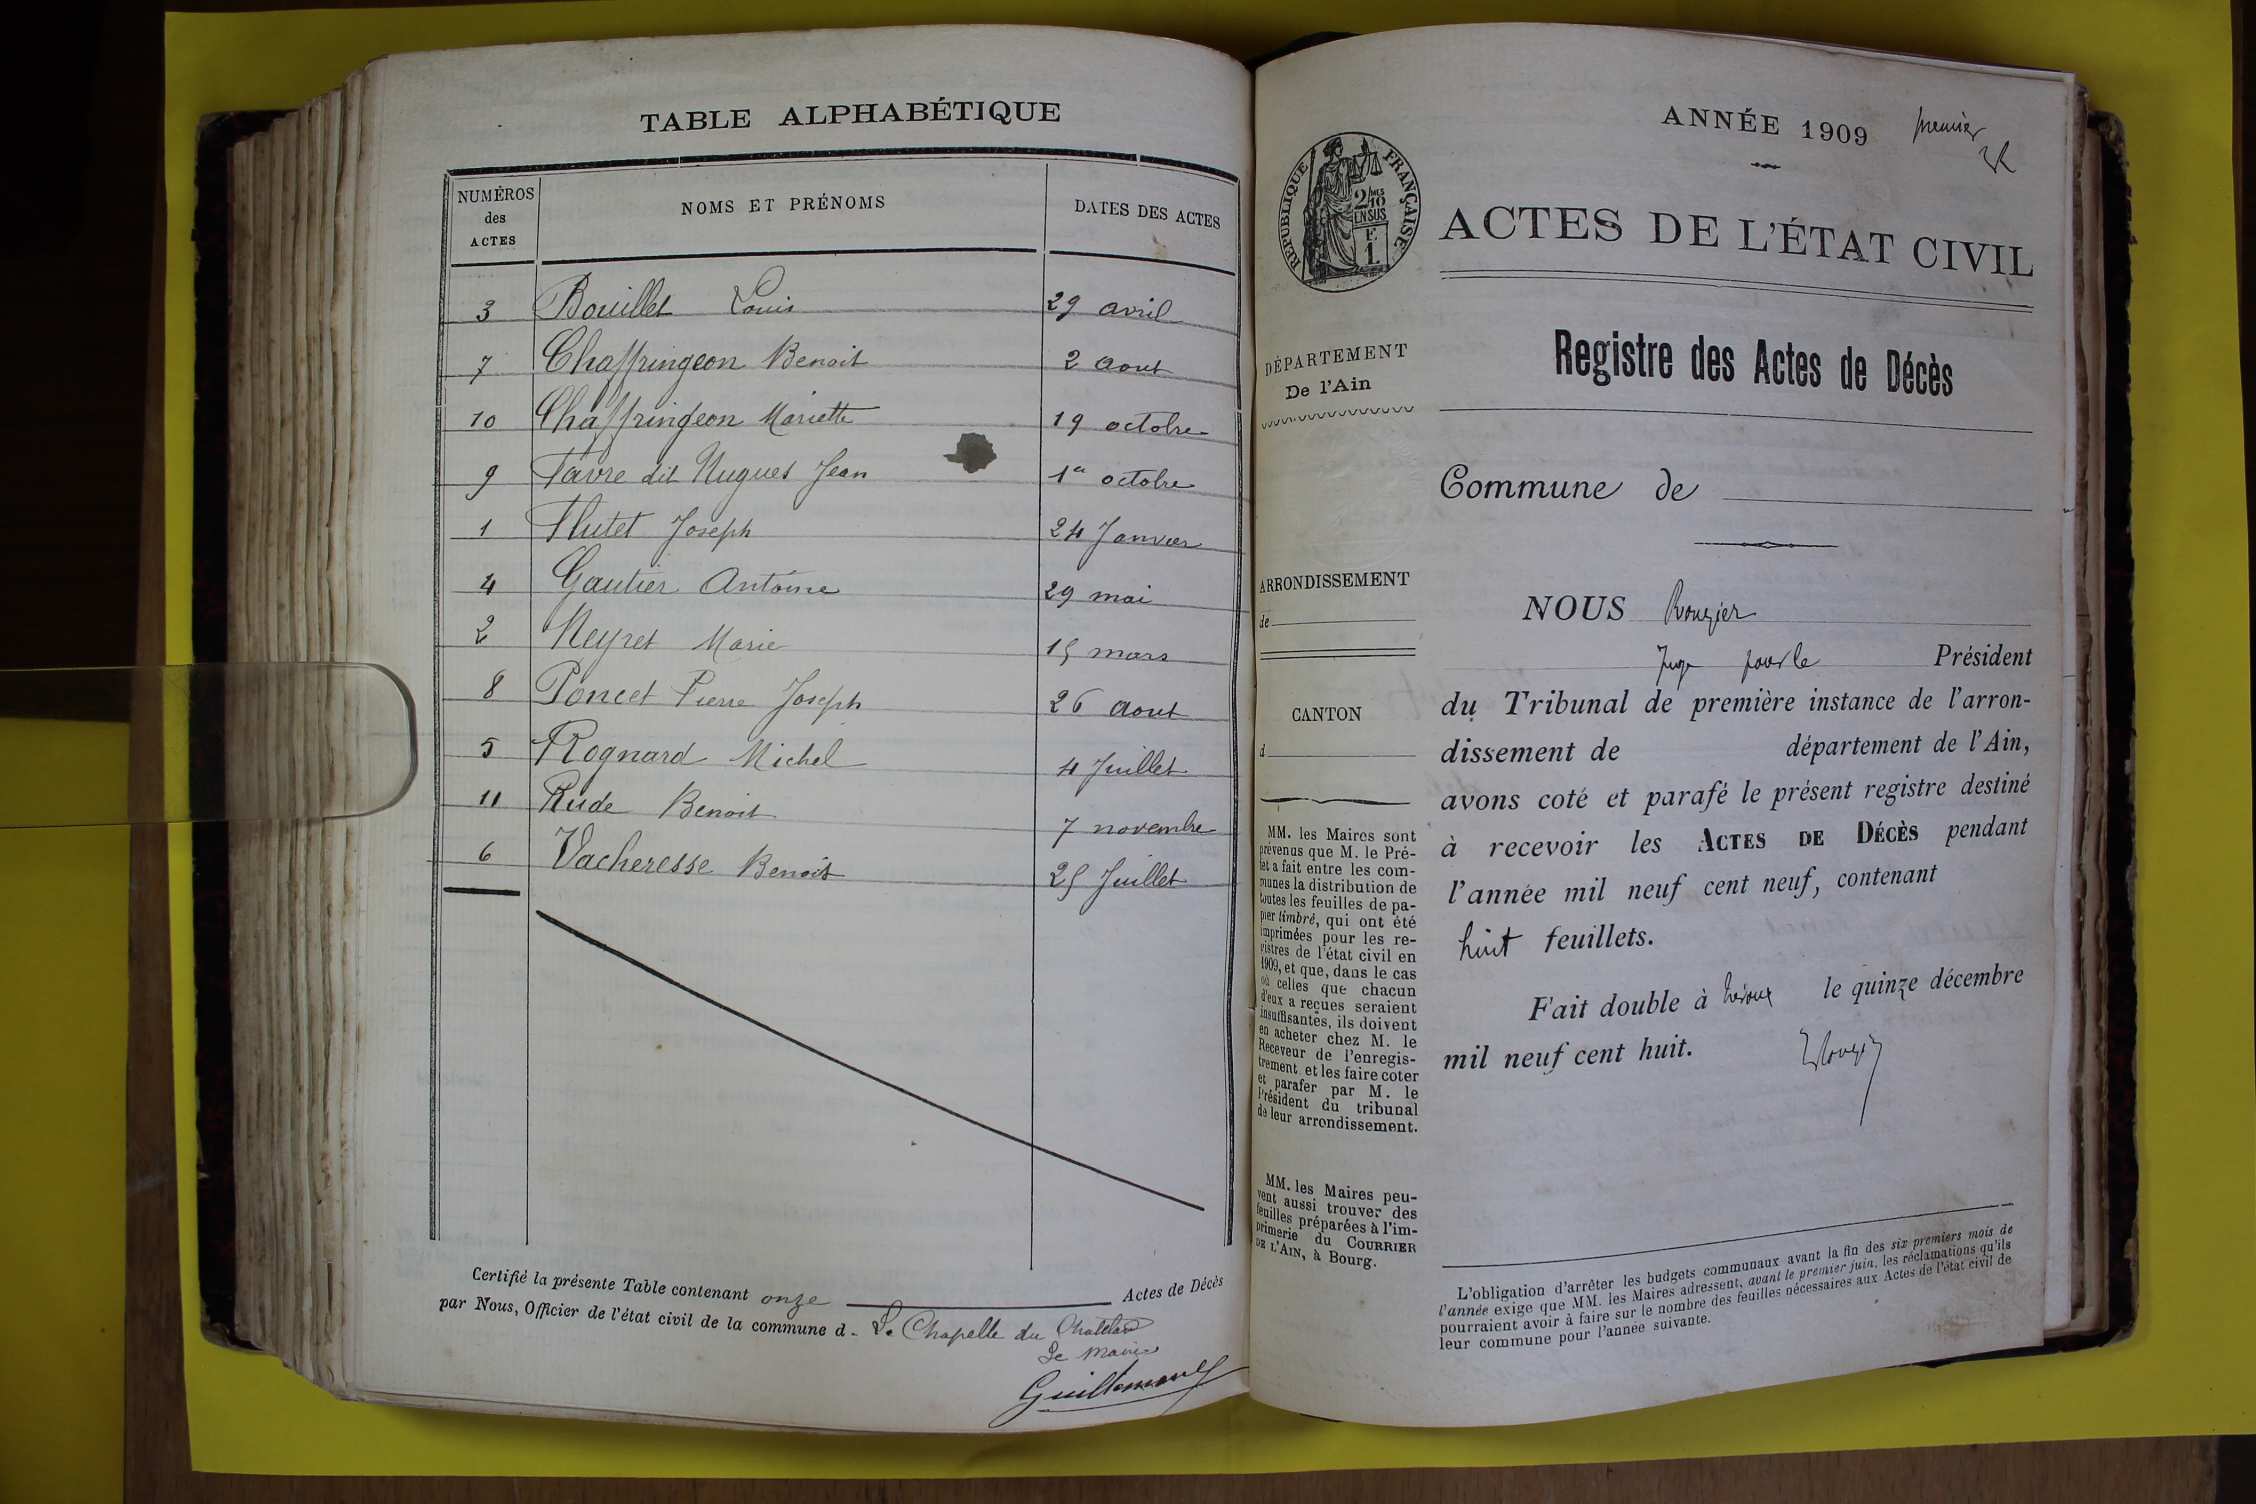 TABLE ALPHABÉTIQUE
NUMÉROS des ACTES NOMS ET PRÉNOMS DATES DES ACTES
3 Bouillet Louis 29 avril
7 Chaffringeon Benoit 2 aout
10 Chaffringeon Mariette 19 octobre
9 Favre dit Hugues Jean 1er octobre
1 Flutet Joseph 24 Janvier
4 Gautier Antoine 29 mai
2 Neyret Marie 15 mars
8 Poncet Pierre Joseph 26 aout
5 Rognard Michel 4 Juillet
11 Rude Benoit 7 novembre
6 Vacheresse Benoit 25 Juillet
Certifié la présente Table contenant onze Actes de Décès
par Nous, Officier de l'état civil de la commune d. La Chapelle du Chatelard
Le Maire
ANNÉE 1909 premier
RÉPUBLIQUE FRANÇAISE
2/10MES
EN SUS
F
1
ACTES DE L'ÉTAT CIVIL
Registre des Actes de Décès
DÉPARTEMENT
De l'Ain
Commune de
ARRONDISSEMENT
de
CANTON
d
MM. les Maires sont
prévenus que M. le Pré-
fet a fait entre les com-
munes la distribution de
toutes les feuilles de pa-
pier timbré, qui ont été
imprimées pour les re-
gistres de l'état civil en
1909, et que, dans le cas
où celles que chacun
d'eux a reçues seraient
insuffisantes, ils doivent
en acheter chez M. le
Receveur de l'enregis-
trement et les faire coter
et parafer par M. le
Président du tribunal
de leur arrondissement.
MM. les Maires peu-
vent aussi trouver des
feuilles préparées à l'im-
primerie du COURRIER
DE L'AIN, à Bourg.
NOUS Rougier
Juge pour le Président
du Tribunal de première instance de l'arron-
dissement de département de l'Ain,
avons coté et parafé le présent registre destiné
à recevoir les ACTES DE DÉCÈS pendant
l'année mil neuf cent neuf, contenant
huit feuillets.
Fait double à Trévoux le quinze décembre
mil neuf cent huit.
L'obligation d'arrêter les budgets communaux avant la fin des six premiers mois de
l'année exige que MM. les Maires adressent, avant le premier juin, les réclamations qu'ils
pourraient avoir à faire sur le nombre des feuilles nécessaires aux Actes de l'état civil de
leur commune pour l'année suivante.